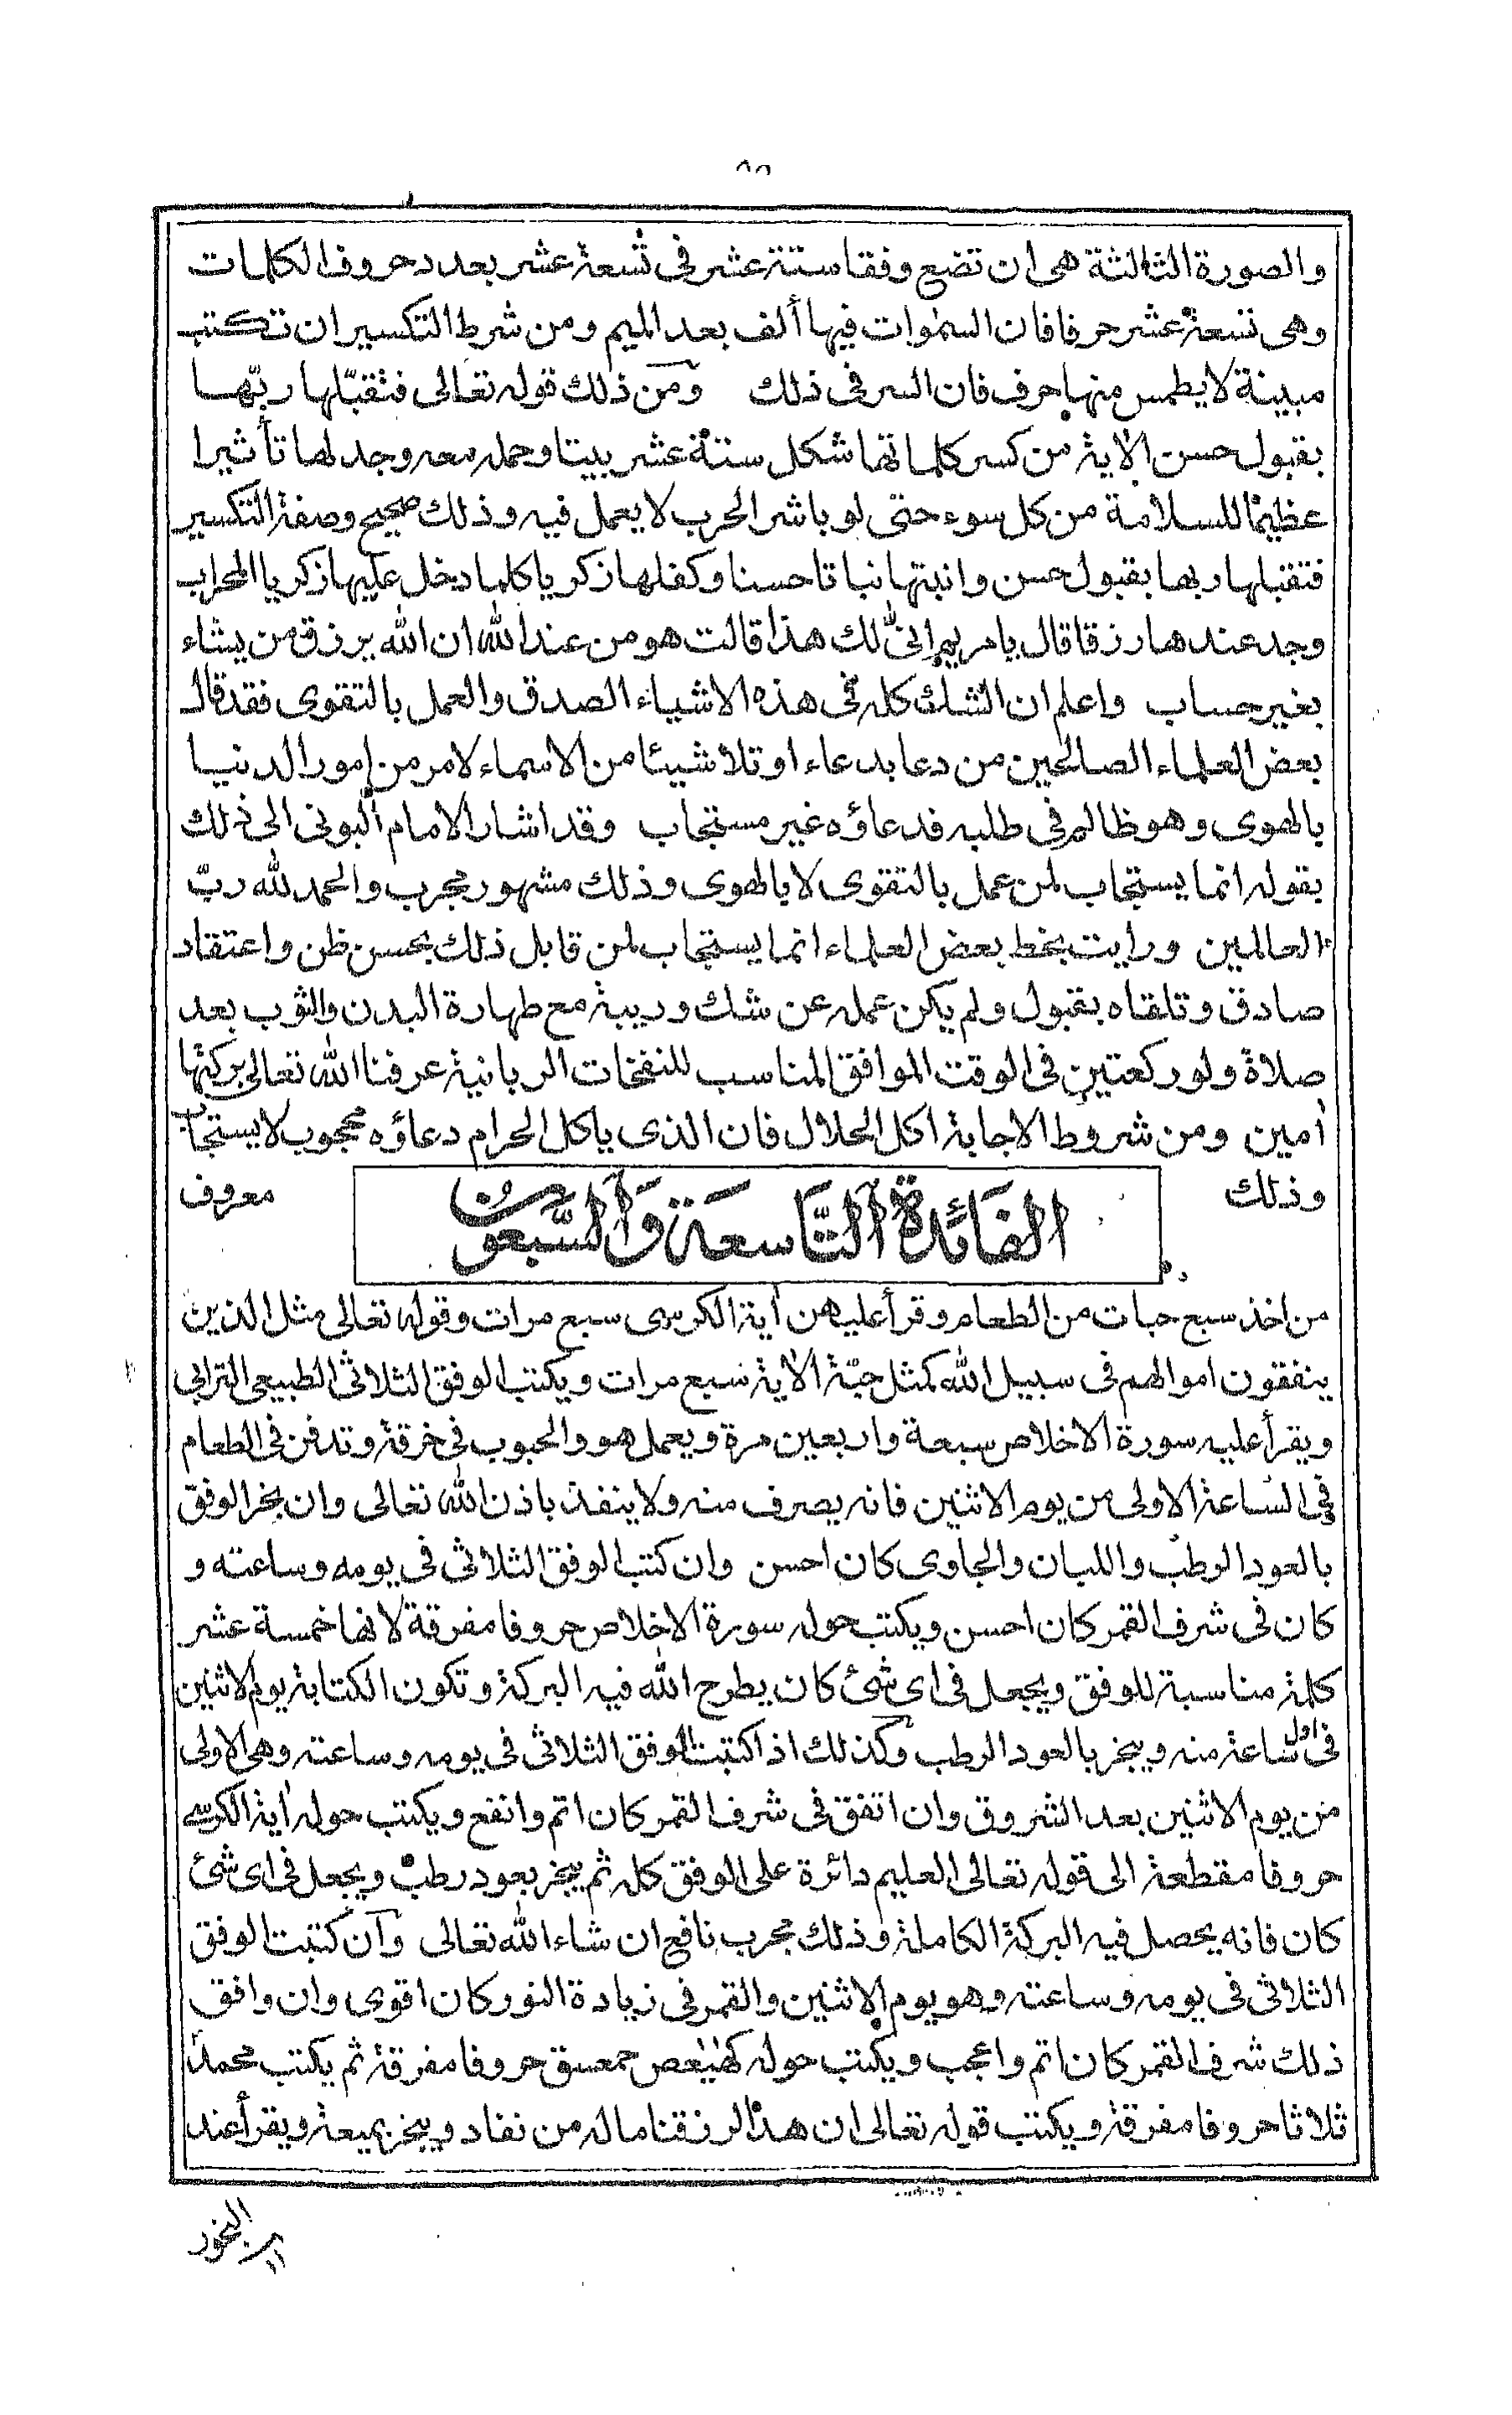 ٨٨
والصورة الثالثة هى ان تضع وفقا ستة عشر فى تسعة عشر بعدد حروف الكلمات
وهى تسعة عشر حرفا فان السمٰوات فيها ألف بعد الميم ومن شرط التكسير ان تكتب
مبينة لا يطمس منها حرف فان السر فى ذلك ومن ذلك قوله تعالى فتقبّلها ربّها
بقبول حسن الآية من كسر كلماتها شكل ستة عشر بيتا وحمله معه وجد لها تأثيرا
عظيمًا للسلامة من كل سوء حتى لو باشر الحرب لا يعمل فيه وذلك صحيح وصفة التكسير
فتقبلها ربها بقبول حسن وانبتها نباتا حسنا وكفلها زكريا كلما دخل عليها زكريا المحراب
وجد عندها رزقا قال يا مريم انىّ لك هذا قالت هو من عند الله ان الله يرزق من يشاء
بغير حساب واعلم ان الشك كله فى هذه الاشياء الصدق والعمل بالتقوى فقد قال
بعض العلماء الصالحين من دعا بدعاء او تلا شيئا من الاسماء لامر من امور الدنيا
بالهوى وهو ظالم فى طلبه فدعاؤه غير مستجاب وقد اشار الامام البونى الى ذلك
بقوله انما يستجاب لمن عمل بالتقوى لا بالهوى وذلك مشهور مجرب والحمد لله ربّ
العالمين ورايت بخط بعض العلماء انما يستجاب لمن قابل ذلك بحسن ظن واعتقاد
صادق وتلقاه بقبول ولم يكن عمله عن شك وريبة مع طهارة البدن والثوب بعد
صلاة ولو ركعتين فى الوقت الموافق المناسب للنفخات الربانية عرفنا الله تعالى بركتها
اٰمين ومن شروط الاجابة اكل الحلال فان الذى ياكل الحرام دعاؤه محجوب لا يستجاب
وذلك معروف
الفَائدة التَّاسعَة وَالسَّبعُون
من اخذ سبع حبات من الطعام وقرأ عليهن اية الكرسى سبع مرات وقوله تعالى مثل الذين
ينفقون اموالهم فى سبيل الله كمثل حبّة الآية سبع مرات ويكتب الوفق الثلاثى الطبيعى الترابى
ويقرأ عليه سورة الاخلاص سبعة واربعين مرة ويعمل هو والحبوب فى خرقة وتدفن فى الطعام
فى الساعة الاولى من يوم الاثنين فانه يصرف منه ولا ينفذ باذن الله تعالى وان بخر الوفق
بالعود الرطب واللبان والجاوى كان احسن وان كتب الوفق الثلاثى فى يومه وساعته و
كان فى شرف القمر كان احسن ويكتب حوله سورة الاخلاص حروفا مفرقة لانها خمسة عشر
كلمة مناسبة للوفق ويجعل فى اى شئ كان يطرح الله فيه البركة وتكون الكتابة يوم الاثنين
فى اول ساعة منه ويبخر بالعود الرطب وكذلك اذا كتبت الوفق الثلاثى فى يومه وساعته وهى الاولى
من يوم الاثنين بعد الشروق وان اتفق فى شرف القمر كان اتم وانفع ويكتب حوله اٰية الكرسى
حروفا مقطعة الى قوله تعالى العليم دائرة على الوفق كله ثم يبخر بعود رطب ويجعل فى اى شئ
كان فانه يحصل فيه البركة الكاملة وذلك مجرب نافع ان شاء الله تعالى وان كتبت الوفق
الثلاثى فى يومه وساعته وهو يوم الاثنين والقمر فى زيادة النور كان اقوى وان وافق
ذلك شرف القمر كان اتم واعجب ويكتب حوله كهيعص حمعسق حروفا مفرقة ثم يكتب محمد
ثلاثا حروفا مفرقة ويكتب قوله تعالى ان هذا لرزقنا ماله من نفاد ويبخر بميعة ويقرأ عند
البخور